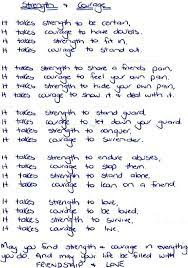 Strength & Courage
It takes strength to be certain,
It takes courage to have doubts.
It takes strength to fit in,
It takes courage to stand out.
It takes strength to share a friends pain,
It takes courage to feel your own pain,
It takes strength to hide your own pain,
It takes courage to show it & deal with it.
It takes strength to stand guard,
It takes courage to let down your guard.
It takes strength to conquer,
It takes courage to surrender.
It takes strength to endure abuses,
It takes courage to stop them
It takes strength to stand alone,
It takes courage to lean on a friend
It takes strength to love,
It takes courage to be loved,
It takes strength to survive,
It takes courage to live.
May you find strength & courage in everything
you do. And may your life be filled with
FRIENDSHIP & LOVE